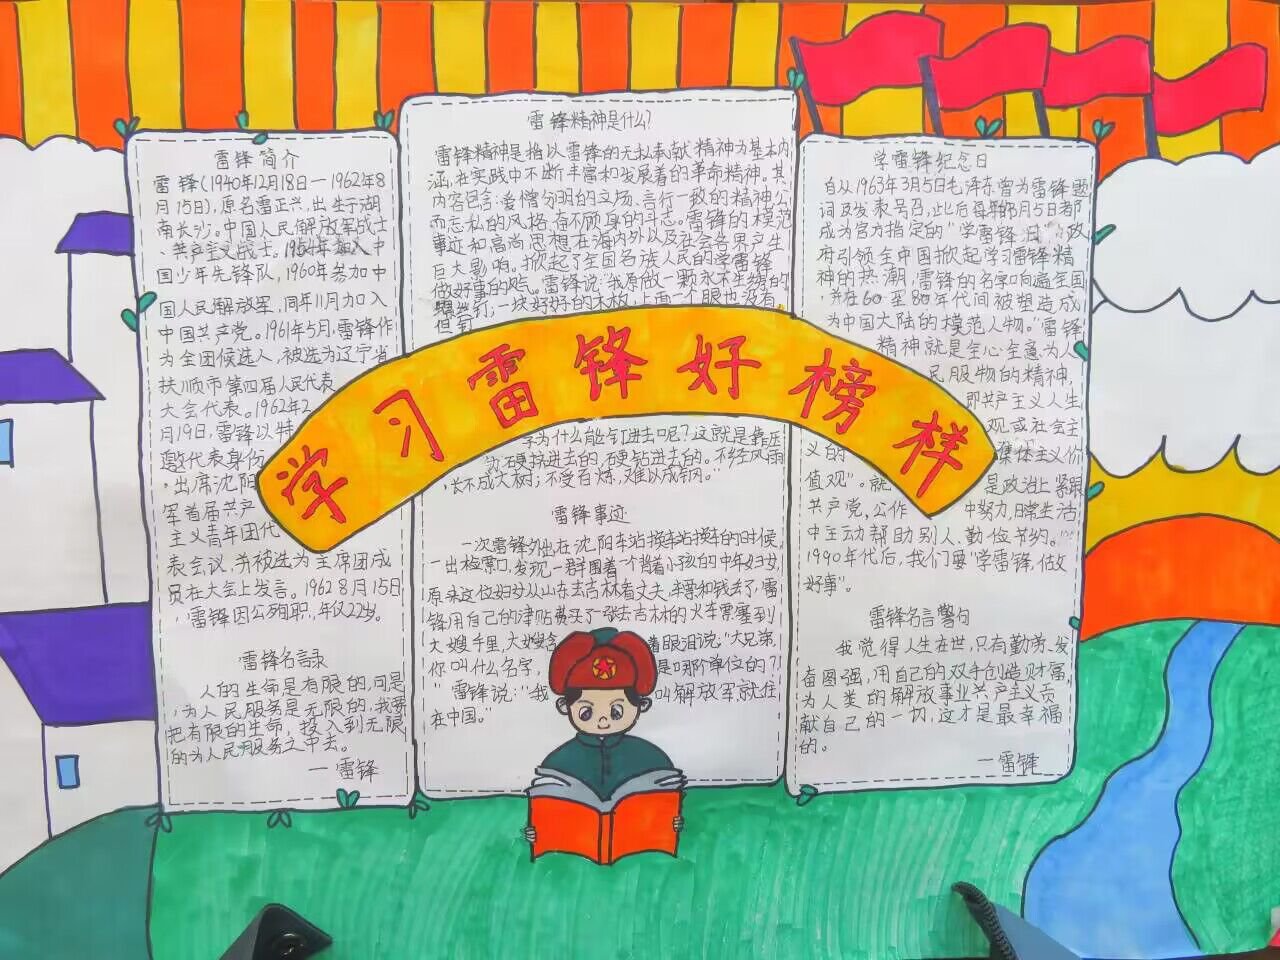 学习雷锋好榜样
雷锋简介
雷锋(1940年12月18日—1962年8
月15日),原名雷正兴,出生于湖
南长沙。中国人民解放军战士
、共产主义战士。1954年加入中
国少年先锋队,1960年参加中
国人民解放军,同年11月加入
中国共产党。1961年5月,雷锋作
为全团候选人,被选为辽宁省
抚顺市第四届人民代表
大会代表。1962年2
月19日,雷锋以特
邀代表身份
,出席沈阳
军首届共产
主义青年团代
表会议,并被选为主席团成
员在大会上发言。1962 8月15日
,雷锋因公殉职,年仅22岁。
雷锋名言录
人的生命是有限的,可是
,为人民服务是无限的,我要
把有限的生命,投入到无限
的为人民服务之中去。
—雷锋
雷锋精神是什么?
雷锋精神是指以雷锋的无私奉献精神为基本内
涵,在实践中不断丰富和发展着的革命精神。其
内容包含:爱憎分明的立场、言行一致的精神公
而忘私的风格,奋不顾身的斗志。雷锋的模范
事迹和高尚思想在海内外以及社会各界产生
巨大影响。掀起了全国各族人民的学雷锋
做好事的风气。雷锋说:"我原做一颗永不生锈的
螺丝钉,一块好好的木板,上面一个眼也没有
但钉
为什么能钉进去呢?这就是靠压
力硬挤进去的,硬钻进去的。不经风雨
,长不成大树;不受百炼,难以成钢。"
雷锋事迹
一次雷锋外出在沈阳车站换车站换车的时候
一出检票口,发现一群围着一个背着小孩的中年妇女,
原来这位妇女从山东去吉林看丈夫,车票和钱丢了,雷
锋用自己的津贴费买了一张去吉林的火车票塞到
大嫂手里,大嫂含 着眼泪说:"大兄弟,
你叫什么名字, 是哪个单位的?
"雷锋说:"我 叫解放军就住
在中国。"
学雷锋纪念日
自从1963年3月5日毛泽东曾为雷锋题
词及发表号召,此后每年3月5日都
成为官方指定的"学雷锋日",政
府引领全中国掀起学习雷锋精
神的热潮,雷锋的名字响遍全国
,并在60至80年代间被塑造成
为中国大陆的模范人物。"雷锋
精神就是全心全意为人
民服物的精神,
即共产主义人生
观或社会主
义的 集体主义价
值观"。就 是政治上紧跟
共产党,公作 中努力,日常生活
中主动帮助别人、勤俭节约。"
1990年代后,我们要"学雷锋,做
好事"。
雷锋名言警句
我觉得人生在世,只有勤劳、发
奋图强,用自己的双手创造财富,
为人类的解放事业共产主义贡
献自己的一切,这才是最幸福
的。
—雷锋